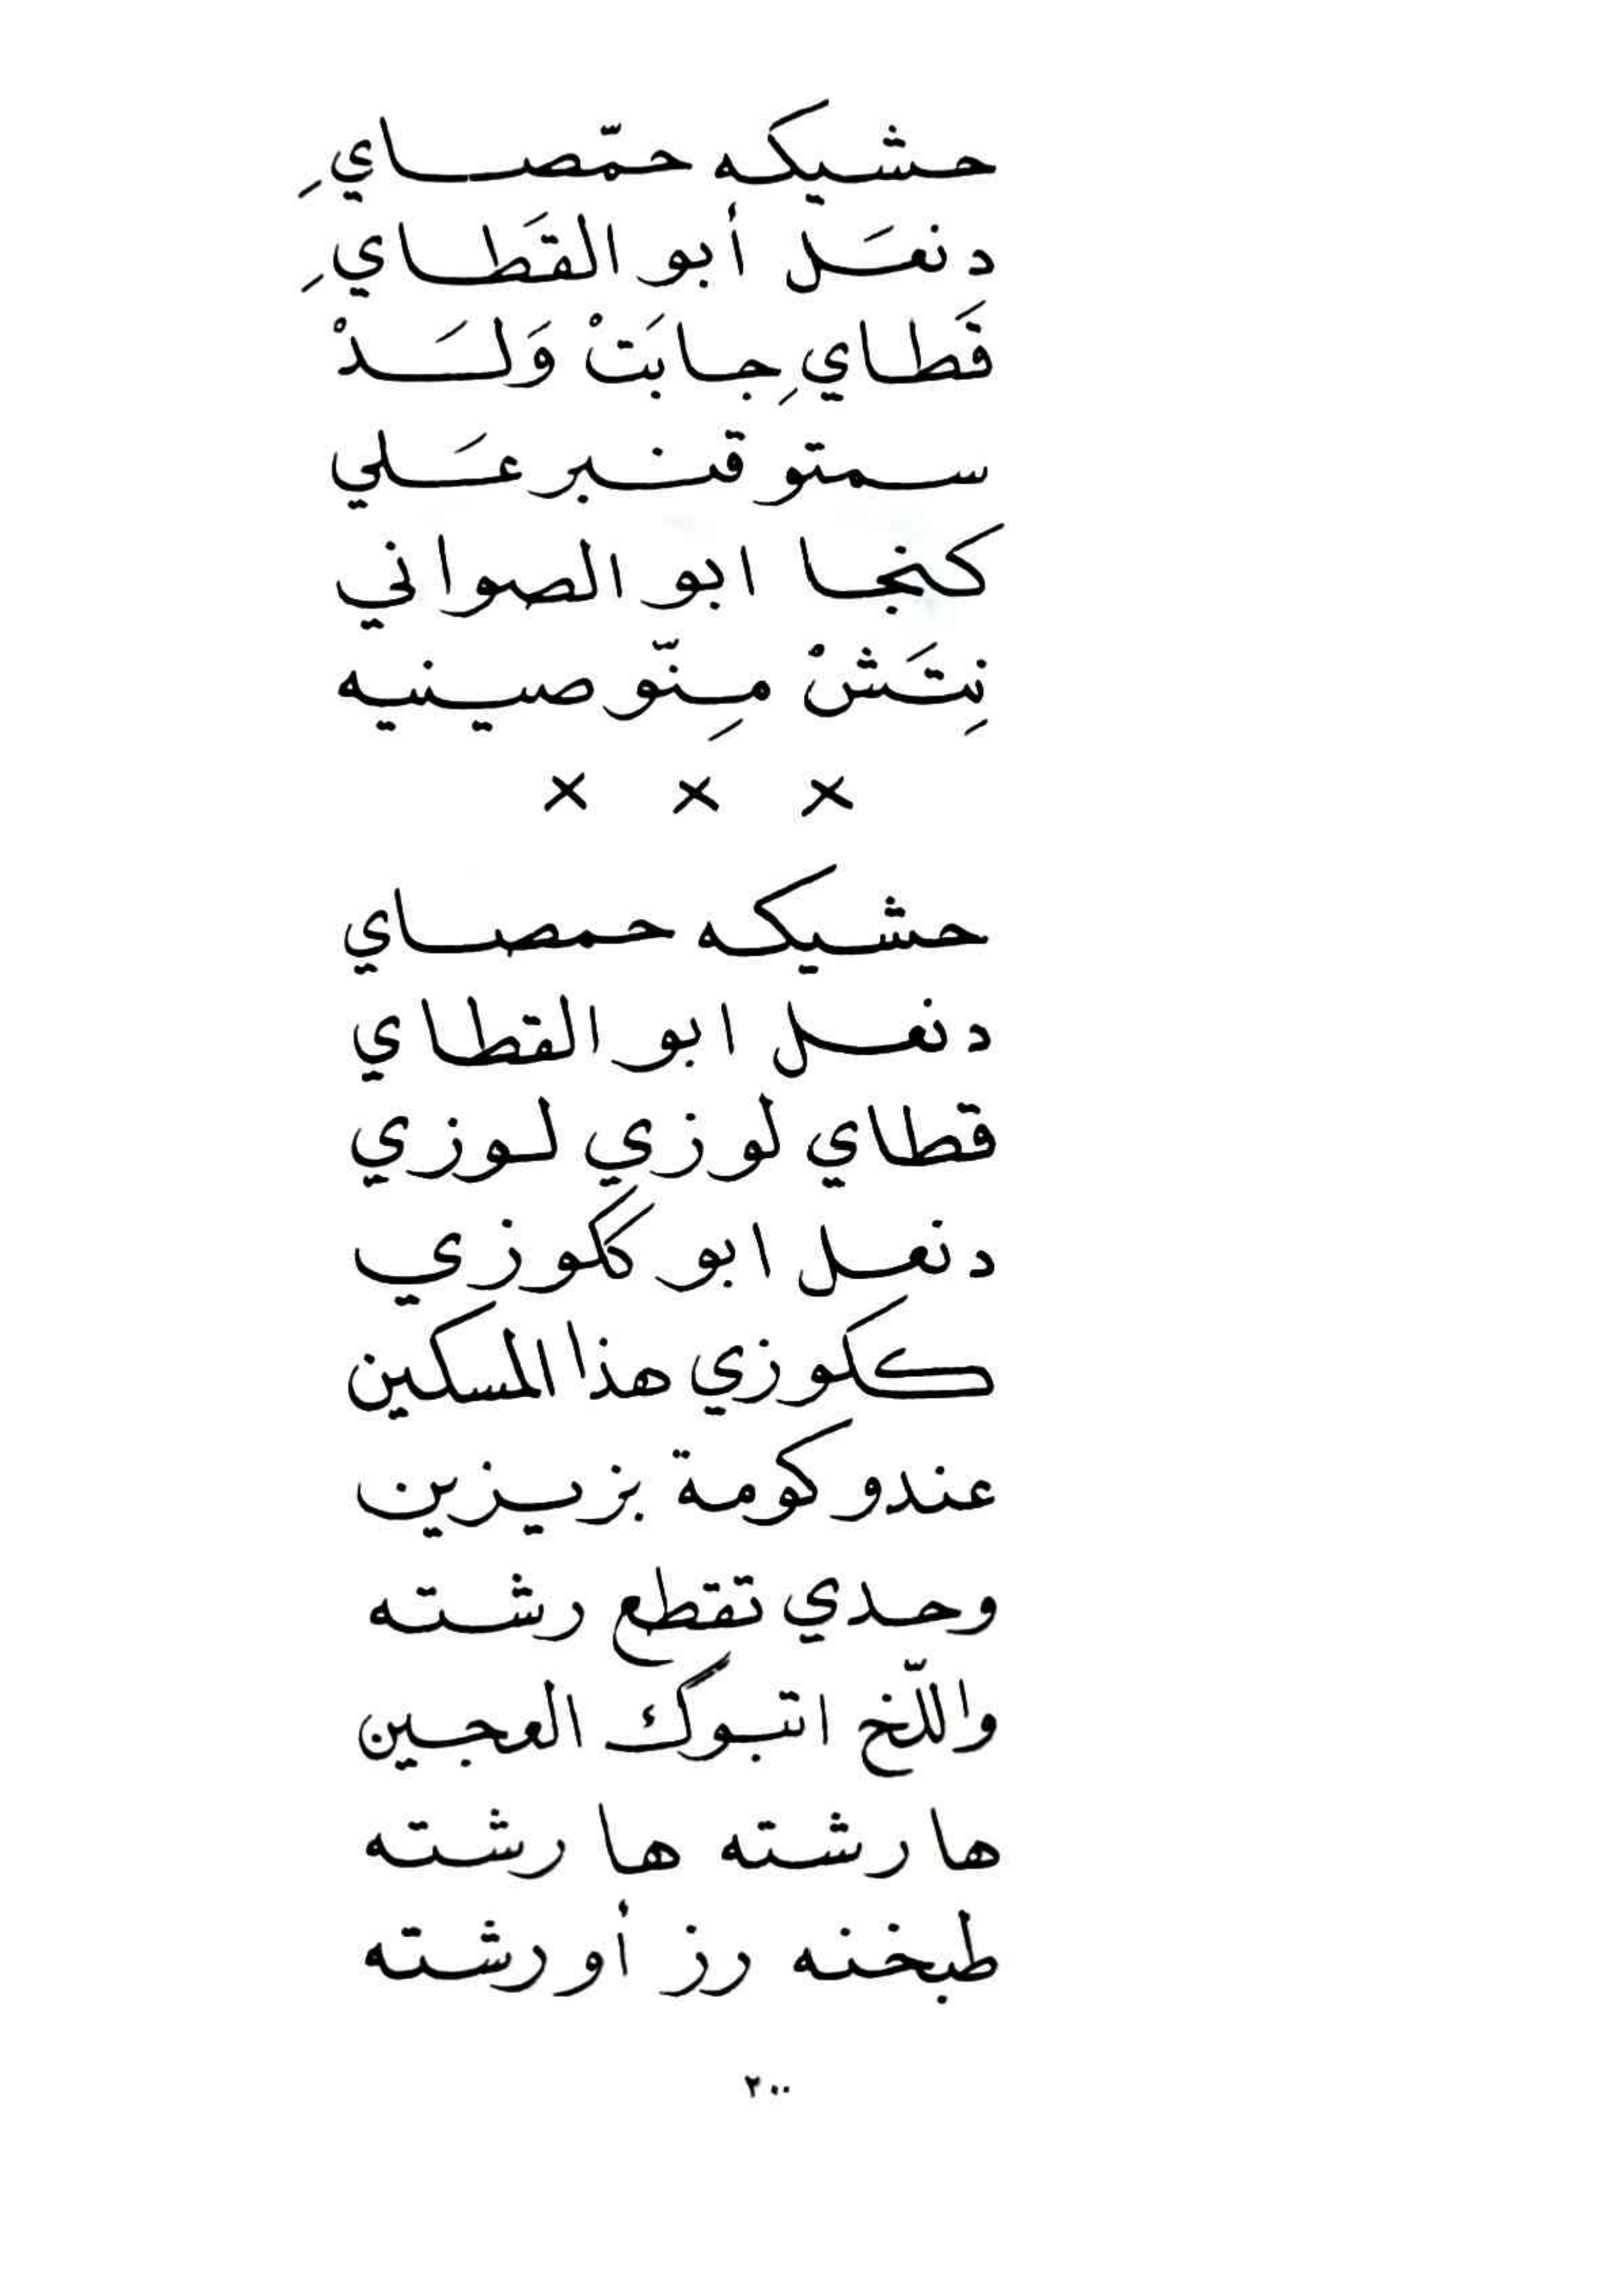 حشيكه حمّصايِ
دنعَل أبو القَطايِ
قَطايِ جابَتْ وَلَدْ
سمتو قنبر عَلي
كنجا ابو الصواني
نِتَشْ مِنّو صينيه
× × ×
حشيكه حمصاي
دنعل ابو القطاي
قطاي لوزي لوزي
دنعل ابو ككوزي
ككوزي هذا المسكين
عندو كومة بزيزين
وحدي تقطع رشته
واللّخ اتبوك العجين
ها رشته ها رشته
طبخنه رز أو رشته
٢٠٠